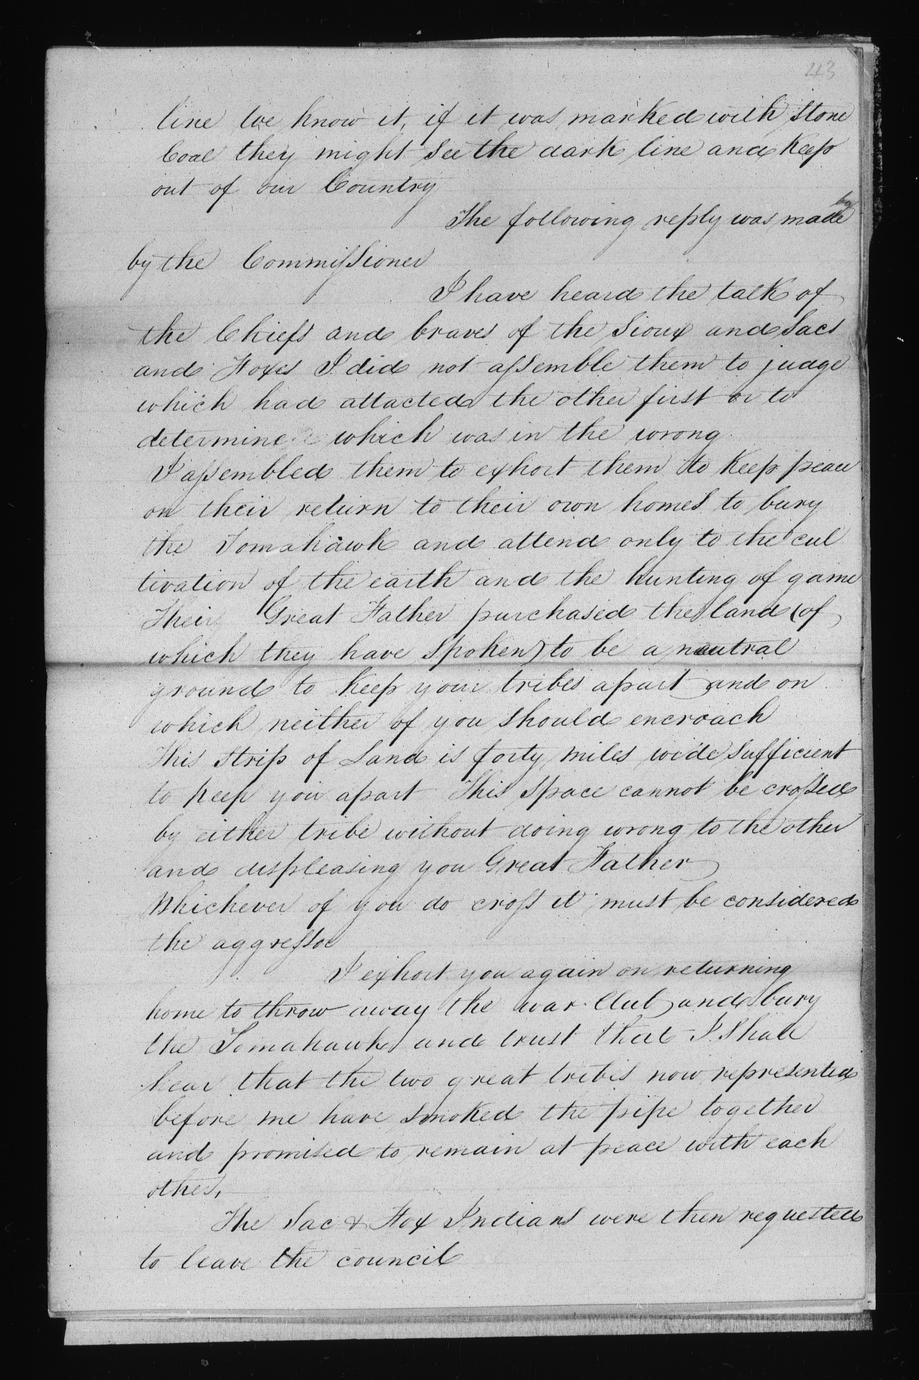 43
line we know it, if it was marked with stone
Coal they might see the dark line and keep
out of our Country
The following reply was made by
by the Commissioner
I have heard the talk of
the Chiefs and braves of the Sioux and Sacs
and Foxes I did not assemble them to judge
which had attacted the other first or to
determine which was in the wrong.
I assembled them to exhort them to keep peace
on their return to their own homes to bury
the Tomahawk and attend only to the cul
tivation of the earth and the hunting of game
Their Great Father purchased the land (of
which they have spoken) to be a neutral
ground to keep your tribes apart and on
which neither of you should encroach
This strip of Land is forty miles wide sufficient
to keep you apart This space cannot be crossed
by either tribe without doing wrong to the other
and displeasing you Great Father
Whichever of you do cross it must be considered
the aggressor
I exhort you again on returning
home to throw away the war Club and bury
the Tomahawk and trust that I shall
hear that the two great tribes now represented
before me have smoked the pipe together
and promised to remain at peace with each
other,
The Sac & Fox Indians were then requested
to leave the council